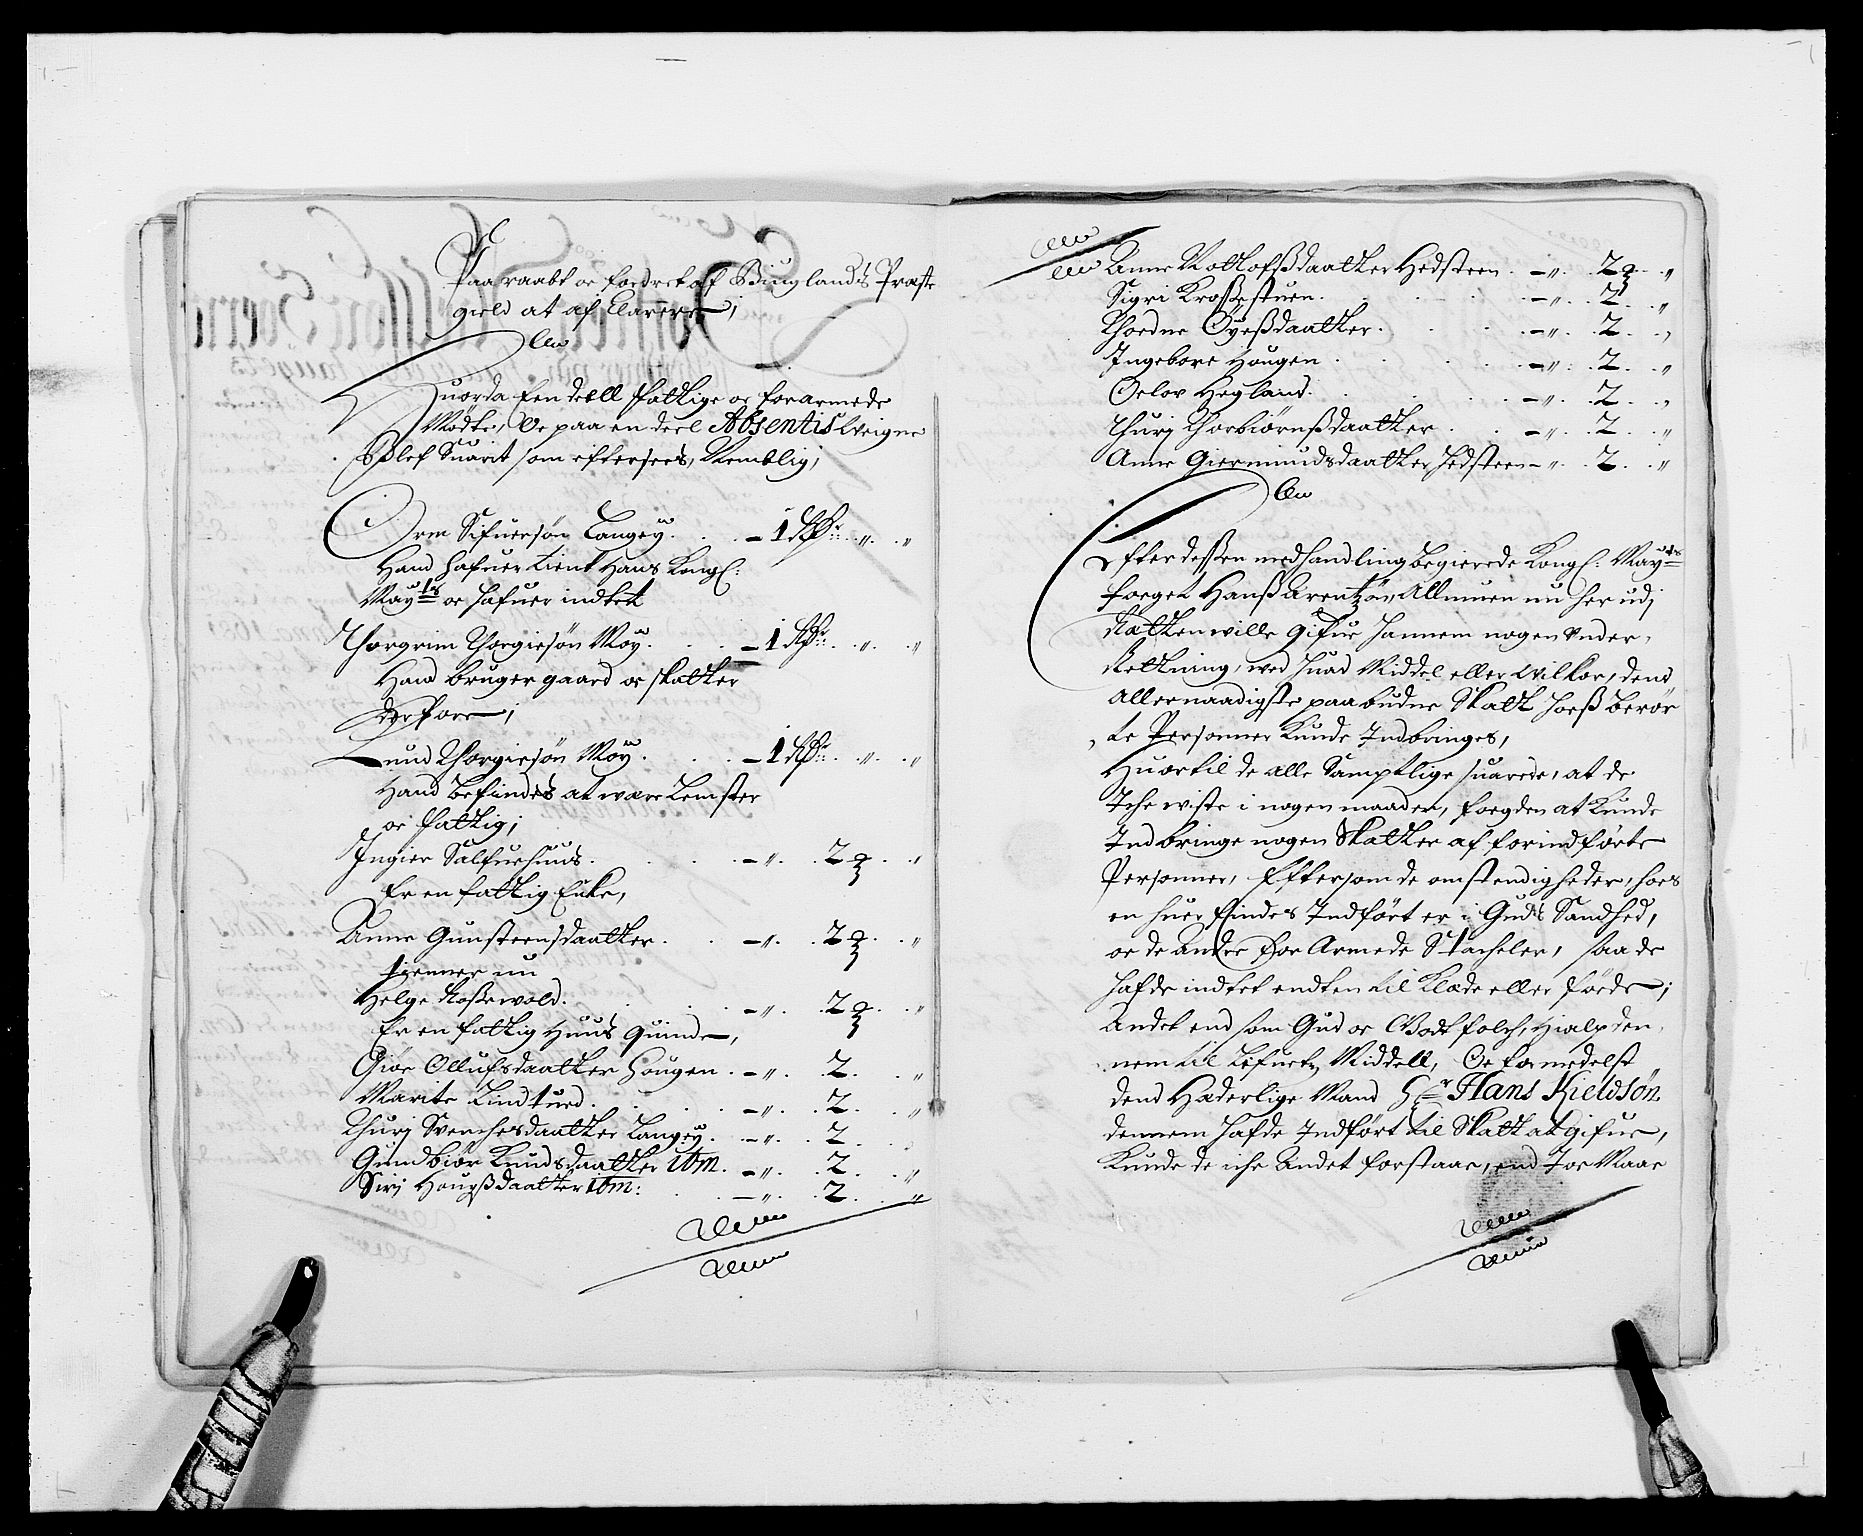 Paaraabt oc fordret af Biuglands Præste
gield at af Clarere;
Huorda Een deell fattige oc forarmede
Mødte, Oc paa en deel Absentis Veigne
Blef Suarit som eftersees, Nemblig;
Orm Sifuersøn Langey. - 1 Rdr „ „
Hand hafuer tient Hans Kongl:
Mayts oc hafuer indtet
Thorgrim Thorgiersøn Moy. - 1 Rdr „ „
Hand bruger gaard oc skatter
derfore;
Knud Thorgiersøn Moy. - 1 Rdr „ „
Hand befindes at were Lemster
oc fattig;
Ingier Salfuehuus. - „ 2 ȝ „
Er en fattig Enke,
Anne Gunsteensdaatter. - „ 2 ȝ „
tienner nu
Helge Rossewold. - „ 2 ȝ „
Er en fattig Huus Quinde,
Giør Ollufsdaatter Hougen. - „ 2 „
Marite Lindtued. - „ 2 „
Thurj Svenchesdaatter Langey. - „ 2
Gundbiør Knudsdaatter ibm. - „ 2 „
Sirj Hougsdaatter ibm: - „ 2 „
Anne Rollofsdaatter Hedsteen. - „ 2 ȝ „
Sigri Krossestuen. - „ 2 „
Thordne Øyesdaatter. - „ 2 „
Ingebore Hougen. - „ 2 „
Orlov Hegland. - „ 2 „
Thurj Thorbiørnsdaatter. - „ 2 „
Anne Giermundsdaatter Hedsteen - „ 2 „
Efter dessen medhandling begierede Kongl: Mayts
foeget Hans Arentzøn, Allmuen nu her udj
Retten wille gifue hannem nogen Under,
Rettning, wed huad Middel eller Vilkor, dend
allernaadigste paabudne Skatt hoes berør
te Personner Kunde Indbringes,
Huortil de alle Samptlige suarede, at de
Iche wiste i nogen maader, foegden at Kunde
Indbringe nogen Skatter af forindførte
Personner, Eftersom de omstendigheder, hoes
en huer findes Indført er i Guds Sandhed,
oc de andre forArmede Stacheler, saa de
hafde indtet endten til Klæde eller føede;
Andet end som Gud oc Godt folch, hialp den,
nem til Lifuets Middell, Oc formedelst
dend Hæderlige Mand Hr Hans Kieldsøn
dennem hafde Indført til Skatt at gifue,
Kunde de iche Andet forstaae, end Joe Maae